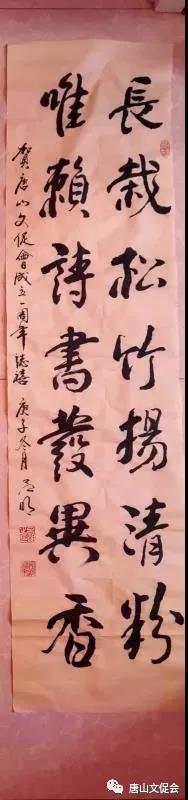 長栽松竹揚清粉
唯賴詩書發異香
賀唐山文促會成立一周年誌禧 庚子冬月
唐山文促会